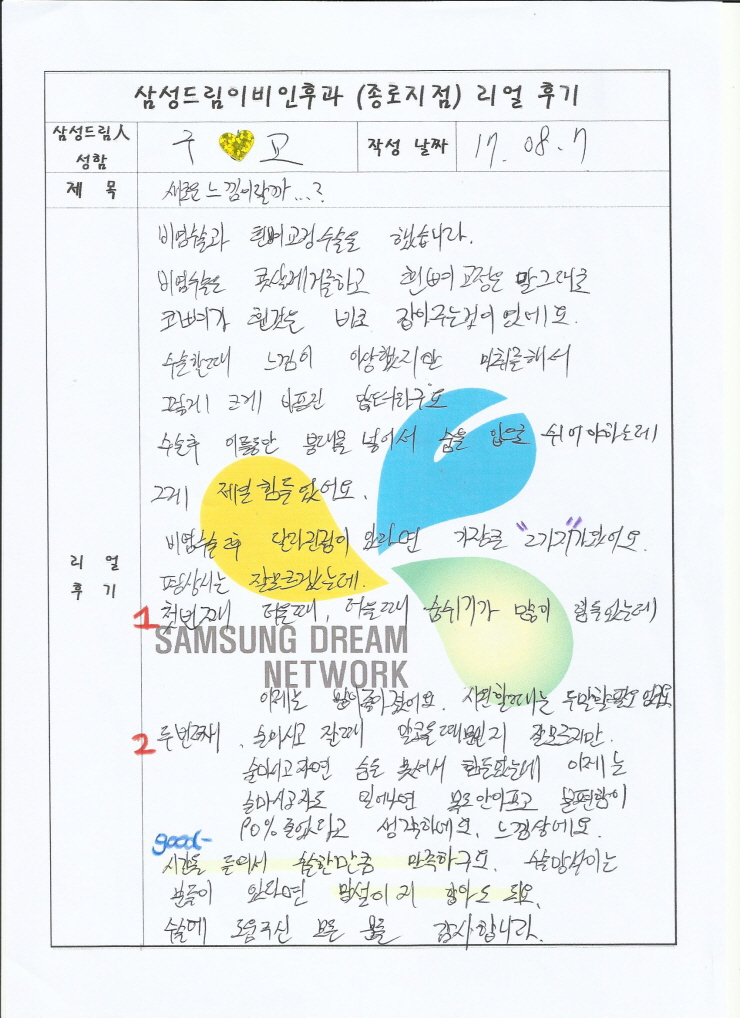 삼성드림이비인후과 (종로지점) 리얼 후기
삼성드림人 성함
구 교
작성 날짜
17. 08. 7
제 목
새로운 느낌이랄까...?
리 얼
후 기
비염수술과 휜뼈교정수술을 했습니다.
비염수술은 콧살제거를하고 휜뼈 교정은 말그대로
코뼈가 휜것을 바로 잡아주는것이 였네요.
수술할때 느낌이 이상했지만 마취를해서
그렇게 크게 아프진 않더라구요
수술후 이틀동안 붕대를 넣어서 숨을 입으로 쉬어야하는데
그게 제일힘들었어요.
비염수술후 달라진점이 있다면 가장큰 "2가지"가있어요.
평상시는 잘모르겠는데.
1 첫번째 더울때, 더울때 숨쉬기가 많이 힘들었는데
SAMSUNG DREAM
NETWORK
이제는 많이좋아졌어요. 시원할때는 두말할필요 없구요
2 두번째, 술마시고 잘때 말곤을때 지 잘모르지만.
술마시고자면 숨을 못쉬어서 힘들었는데 이제는
술마시고자도 일어나면 목도안아프고 불편함이
90% 줄었다고 생각하네요, 느낌상에요.
good-
시간을 들여서 수술한만큼 만족하구요. 수술망설이는
분들이 있다면 망설이지 않아도 되요.
수술에 도움주신 모든 분들 감사합니다.